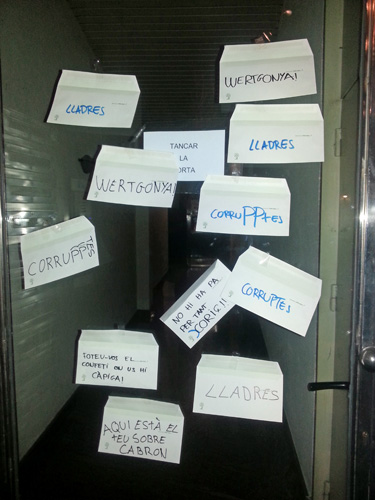 WERTGONYA!
LLADRES
LLADRES
TANCAR
LA
PORTA
WERTGONYA!
CORRUPPTES
CORRUPPTES
CORRUPTES
NO HI HA PA
PER TANT
XORIÇ!!
FOTEU-VOS EL
CONFETI ON US HI
CÀPIGA!
LLADRES
AQUI ESTÀ EL
TEU SOBRE
CABRON